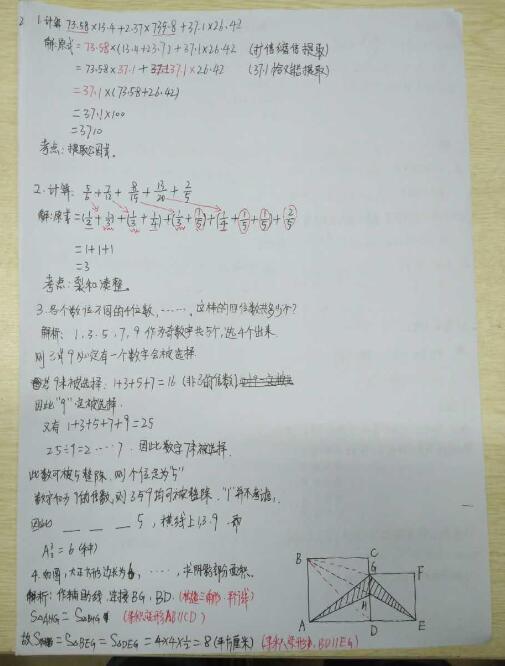 2 1.计算 73.58×13.4+2.37×735.8+37.1×26.42
解:原式=73.58×(13.4+23.7)+37.1×26.42 (扩倍缩倍提取)
=73.58×37.1+37.1×26.42 (37.1 提取)
=37.1×(73.58+26.42)
=37.1×100
=3710
考点:提取公因式。
2.计算: 5/6+7/12+8/15+13/20+2/5
解:原式=(1/2+1/3)+(1/3+1/4)+(1/3+1/5)+(1/4+1/5+1/5)+(2/5)
=1+1+1
=3
考点:裂和凑整。
3.各个数位不同的4位数,……,这样的四位数共多少个?
解析:1、3、5、7、9作为奇数字共5个,选4个出来.
则3与9必定有一个数字会被选择.
若9未被选择:1+3+5+7=16(非3的倍数)
因此"9"一定被选择.
又有1+3+5+7+9=25
25÷9=2……7 因此数字7未被选择.
此数可被5整除,则个位定为"5"
数字和为9的倍数,则3与9皆可被整除."1"并不考虑,
因此 _ _ _ 5,横线上1、3、9.即
A³₃=6(种)
4.如图,大正方形边长为6,……,求阴影部分面积。
解析:作辅助线,连接BG,BD.
S△AHG=S△BHG (等积变形AB∥CD)
故S阴影=S△BEG=S△DEG=4×4×1/2=8(平方厘米)(等积变形,BD∥EG)
B
C
G
F
H
A
D
E